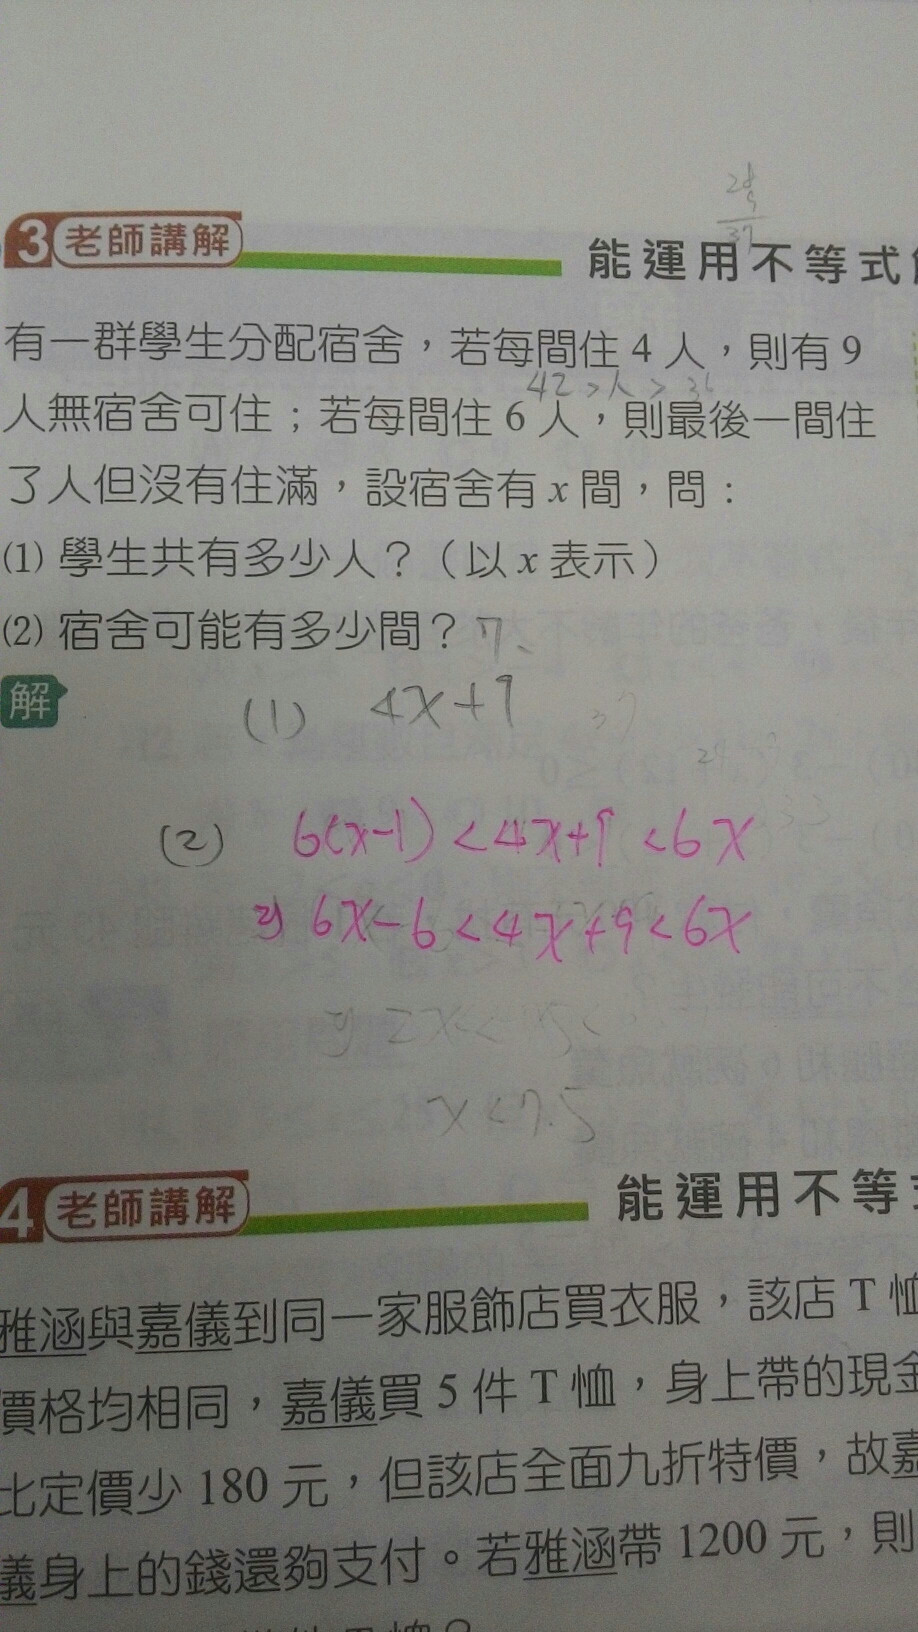 28
9
37
3 老師講解
能運用不等式
有一群學生分配宿舍，若每間住 4 人，則有 9
42 > 人 > 36
人無宿舍可住；若每間住 6 人，則最後一間住
了人但沒有住滿，設宿舍有 x 間，問：
⑴ 學生共有多少人？（以 x 表示）
⑵ 宿舍可能有多少間？7、
解
(1) 4x+9
37
(2) 6(x-1) < 4x+9 < 6x
⇒ 6x-6 < 4x+9 < 6x
⇒ 2x < 15 <
x < 7.5
4 老師講解
能運用不等
雅涵與嘉儀到同一家服飾店買衣服，該店 T 恤
價格均相同，嘉儀買 5 件 T 恤，身上帶的現金
比定價少 180 元，但該店全面九折特價，故嘉
儀身上的錢還夠支付。若雅涵帶 1200 元，則